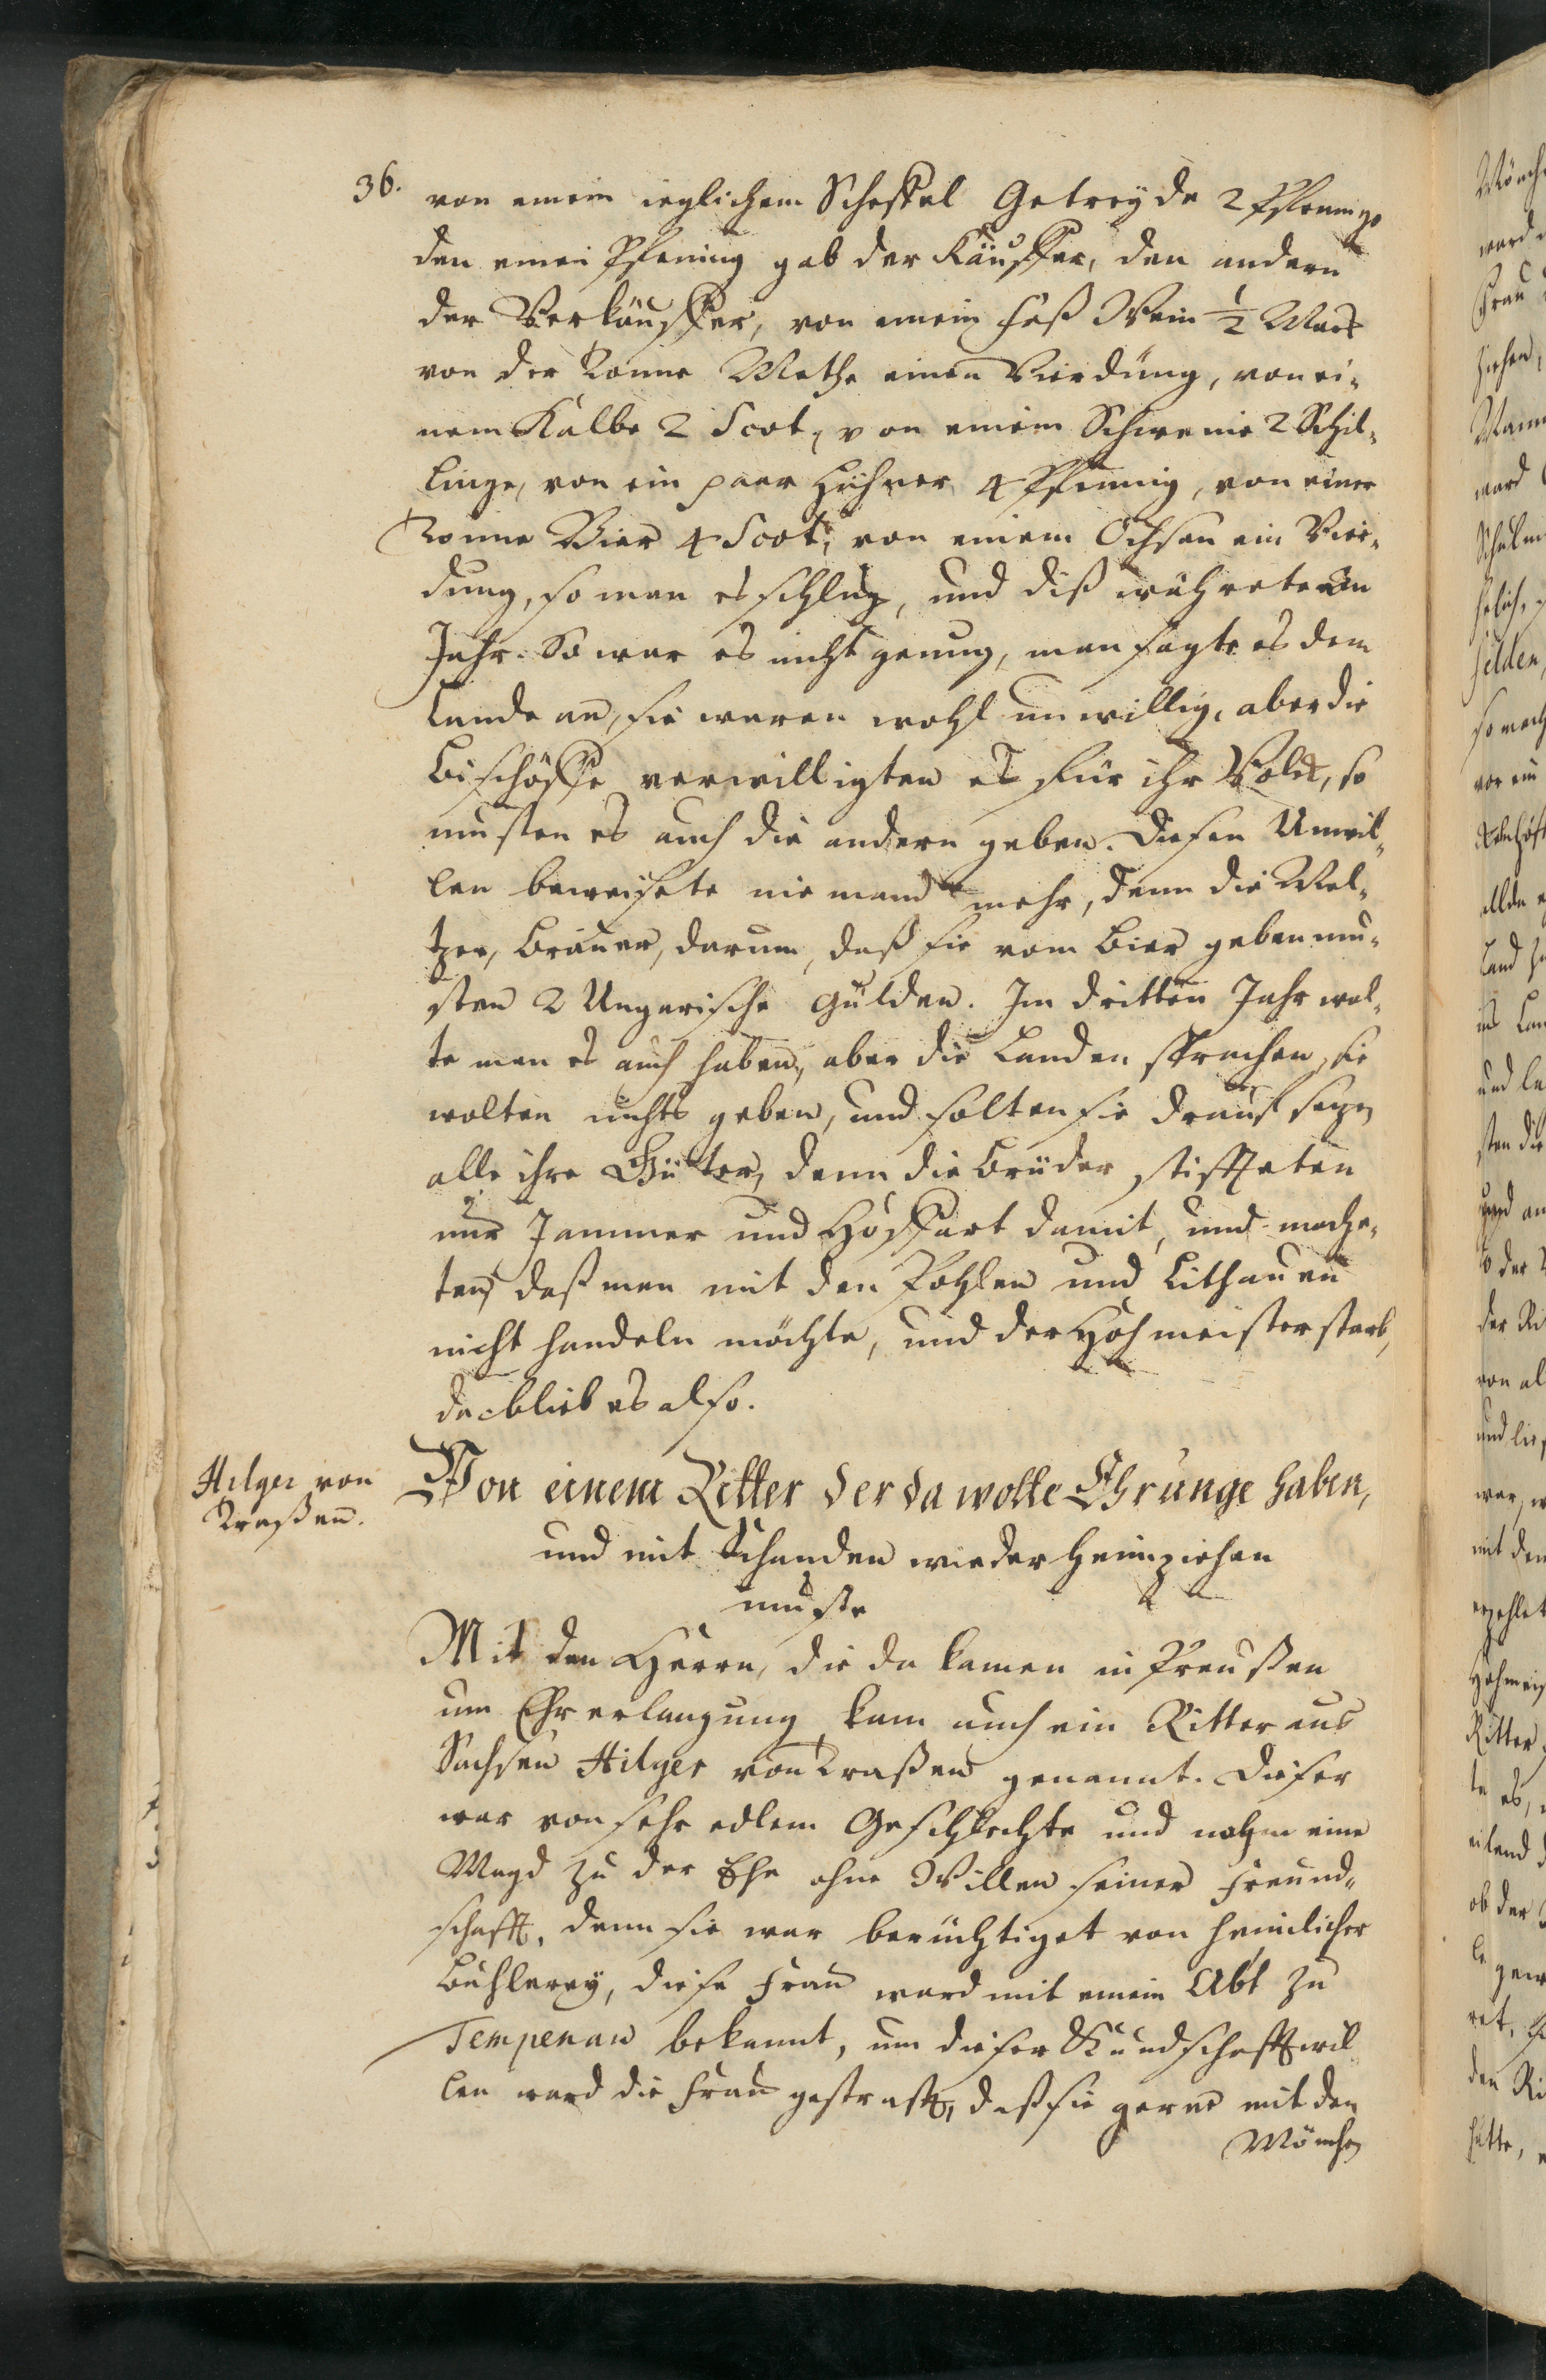 36.
von einem ieglichem Scheffel Getreyde 2 Pfenninge
den einen Pfening gab der Käuffer, den andern
der Verkäuffer, von einem Faß Wein ½ Marc
von der Tonne Methe einen Vierdung, von ei¬
nem Kalbe 2 Scot, von einem Schweine 2 Schil¬
linge, von ein paar Hühner 4 Pfennig, von einer
Tonne Bier 4 Scot, von einem Ochsen ein Vier¬
dung, so man es schlug, und diß währete ein
Jahr. So war es nicht genung, man sagte es dem
Lande an, sie waren wohl unwillig, aber die
Bischöffe verwilligten es für ihr Volck, so
musten es auch die andern geben. Diesen Unwil¬
len beweisete niemand mehr, denn die Mel¬
tzer, Bräuer, darum, daß sie vom Bier geben mu¬
sten 2 Ungarische Gülden. Im dritten Jahr wol¬
te man es auch haben, aber die Landen sprachen, sie
wolten nichts geben, und solten sie drauf setzen
alle ihre Gütter, denn die Brüder stiffteten
nur Jammer und Hoffart damit, und mach¬
ten, daß man mit den Pohlen und Lithauen
nicht handeln möchte, und der Hohmeister starb,
da blieb es also.
Hilger von
Traßen.
Von einem Ritter der da wolte Ehrunge haben,
und mit Schanden wieder heimziehen
muste
Mit den Herrn, die da kamen in Preußen
um Ehr erlangung, kam auch ein Ritter aus
Sachsen Hilger von Traßen genannt. Dieser
war von sehr edlem Geschlechte und nahm eine
Magd zu der Ehe ohne Willen seiner Freund¬
schafft, denn sie war berüchtiget von heimlicher
Buhlerey, diese Frau ward mit einem Abt zu
Tempenau bekannt, um dieser Kundschafft wil
len ward die Frau gestrafft, daß sie gerne mit den
Mönchen